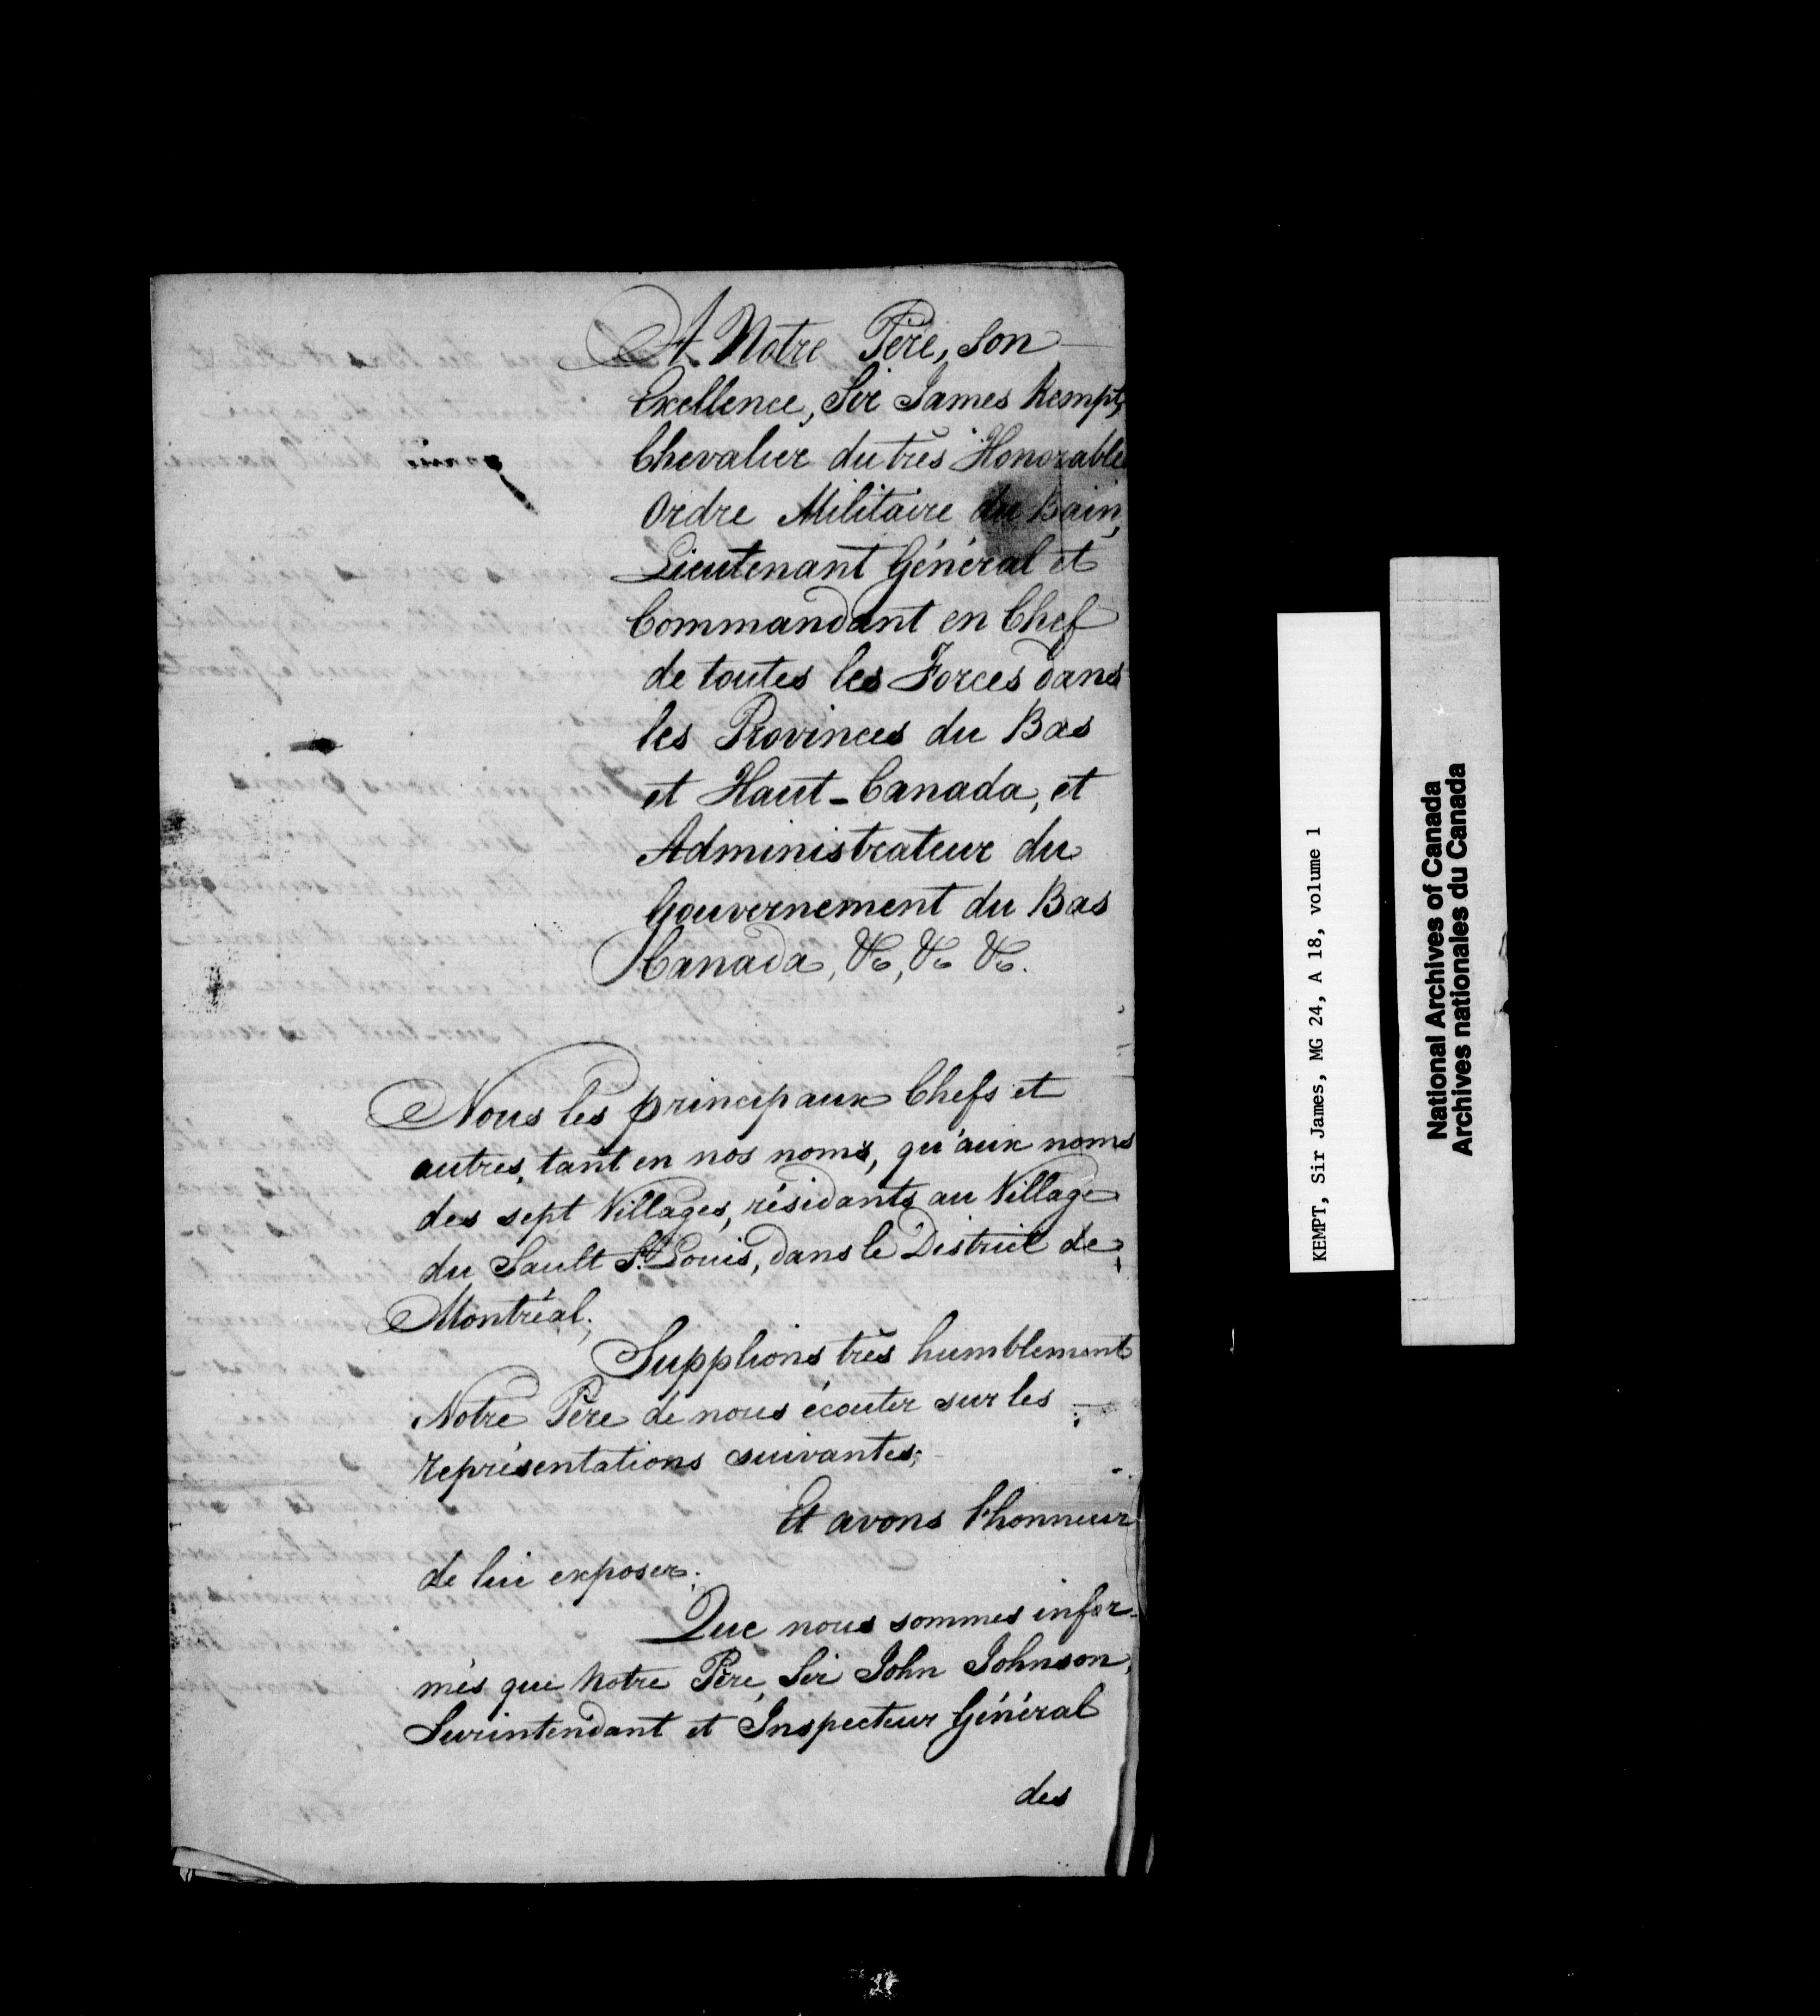 A Notre Père, son
Exellence, Sir James Kempt,
Chevalier du très Honorable
Ordre Militaire du Bain,
Lieutenant Général et
Commandant en Chef
de toutes les Forces dans
les Provinces du Bas
et Haut-Canada, et
Administrateur du
Gouvernement du Bas
Canada, &c, &c &c.
Nous les principaux Chefs et
autres, tant en nos noms, qu'aux noms
des sept Villages, résidants au Village
du Sault St. Louis, dans le District de
Montréal;
Supplions très humblement
Notre Père de nous écouter sur les
représentations suivantes;
Et avons l'honneur
de lui exposer;
Que nous sommes infor-
més que Notre Père, Sir John Johnson,
Surintendant et Inspecteur Général
des
KEMPT, Sir James, MG 24, A 18, volume 1
National Archives of Canada
Archives nationales du Canada